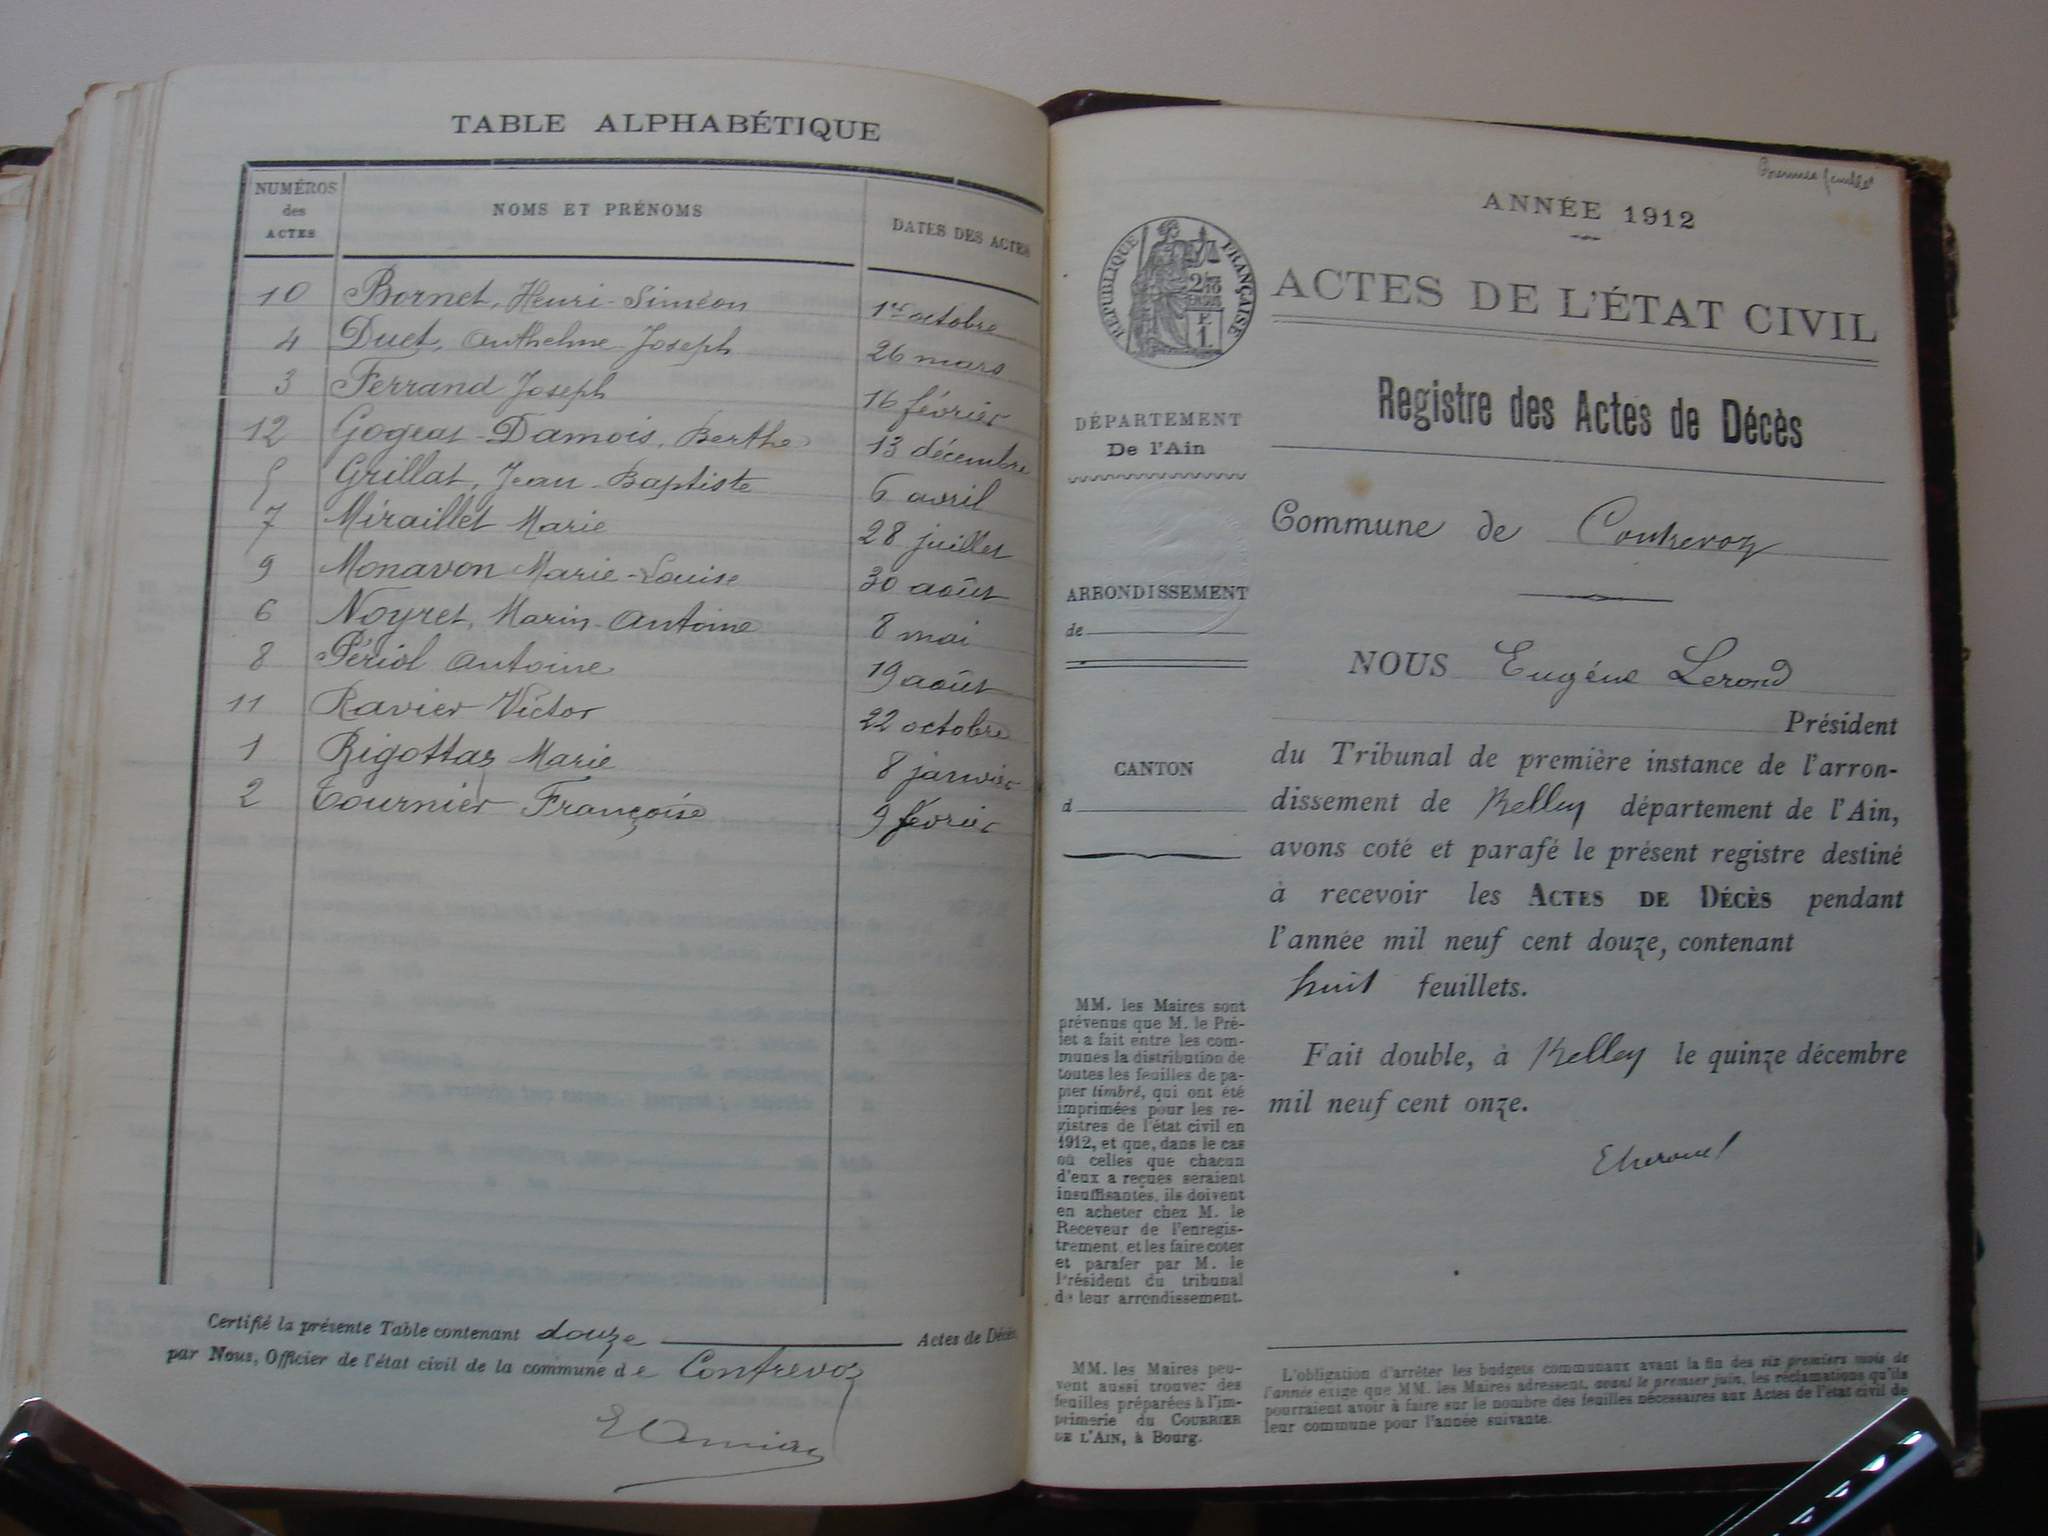 TABLE ALPHABÉTIQUE
NUMÉROS des ACTES NOMS ET PRÉNOMS DATES DES ACTES
10 Bornet, Henri-Siméon 1er octobre
4 Duet, Anthelme-Joseph 26 mars
3 Ferrand Joseph 16 février
12 Gogeat-Damois, Berthe 13 décembre
5 Grillat, Jean-Baptiste 6 avril
7 Miraillet Marie 28 juillet
9 Monavon Marie-Louise 30 août
6 Noyret, Marin-Antoine 8 mai
8 Périol Antoine 19 août
11 Ravier Victor 22 octobre
1 Rigottaz Marie 8 janvier
2 Tournier Françoise 9 février
Certifié la présente Table contenant douze Actes de Décès
par Nous, Officier de l'état civil de la commune de Contrevoz
Premier feuillet
ANNÉE 1912
RÉPUBLIQUE FRANÇAISE
2/10 EN SUS
F. 1.
ACTES DE L'ÉTAT CIVIL
Registre des Actes de Décès
DÉPARTEMENT
De l'Ain
ARRONDISSEMENT
de
CANTON
d
MM. les Maires sont
prévenus que M. le Pré-
fet a fait entre les com-
munes la distribution de
toutes les feuilles de pa-
pier timbré, qui ont été
imprimées pour les re-
gistres de l'état civil en
1912, et que, dans le cas
où celles que chacun
d'eux a reçues seraient
insuffisantes, ils doivent
en acheter chez M. le
Receveur de l'enregis-
trement, et les faire coter
et parafer par M. le
Président du tribunal
de leur arrondissement.
MM. les Maires peu-
vent aussi trouver des
feuilles préparées à l'im-
primerie du COURRIER
DE L'AIN, à Bourg.
Commune de Contrevoz
NOUS Eugène Lerond
Président
du Tribunal de première instance de l'arron-
dissement de Belley département de l'Ain,
avons coté et parafé le présent registre destiné
à recevoir les ACTES DE DÉCÈS pendant
l'année mil neuf cent douze, contenant
huit feuillets.
Fait double, à Belley le quinze décembre
mil neuf cent onze.
L'obligation d'arrêter les budgets communaux avant la fin des six premiers mois de
l'année exige que MM. les Maires adressent, avant le premier juin, les réclamations qu'ils
pourraient avoir à faire sur le nombre des feuilles nécessaires aux Actes de l'état civil de
leur commune pour l'année suivante.